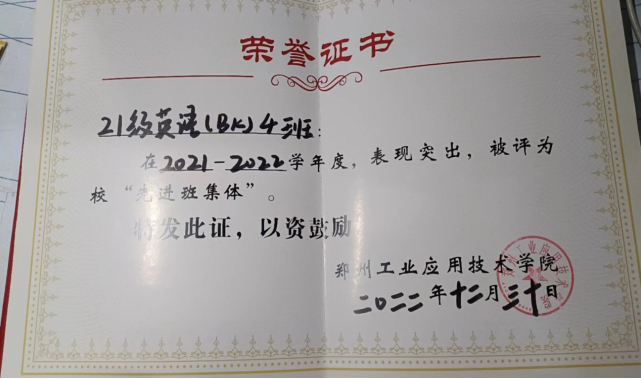 荣誉证书
21级英语(BK)4班:
在2021-2022学年度,表现突出,被评为
校“先进班集体”。
特发此证,以资鼓励
郑州工业应用技术学院
二〇二二年十二月三十日